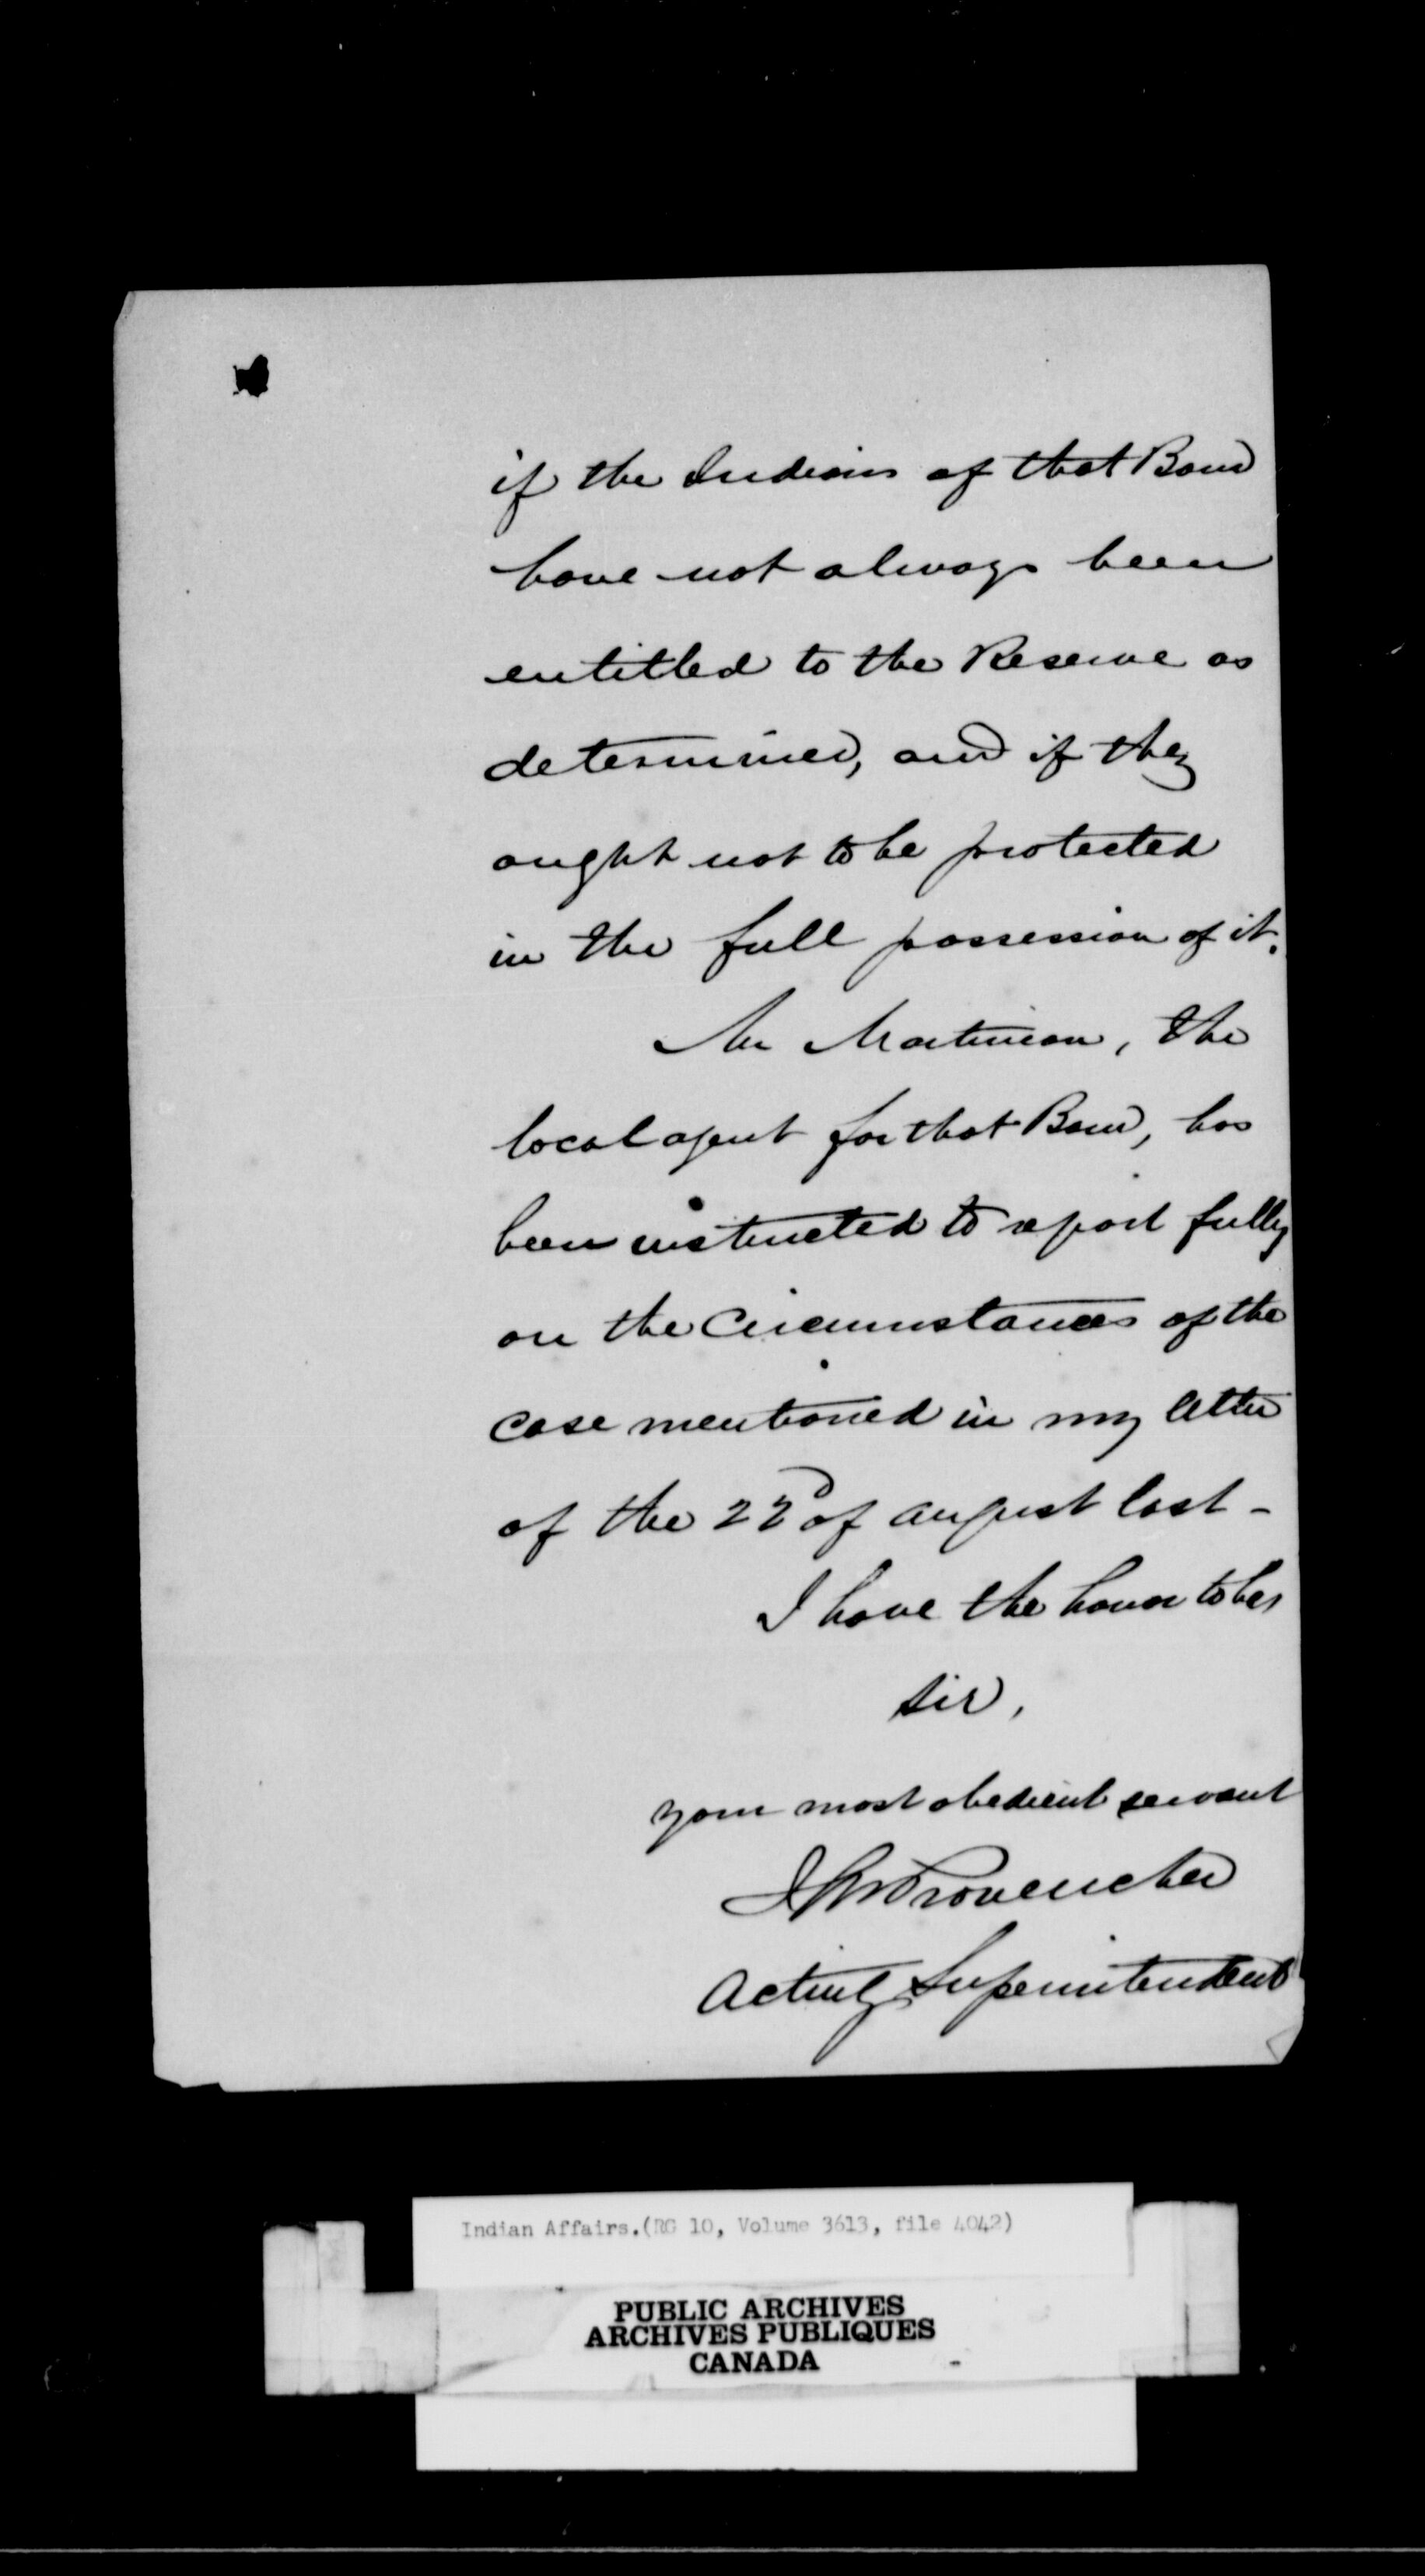 if the Indians of that Band
have not always been
entitled to the Reserve as
determined, and if they
ought not to be protected
in the full possession of it.
Mr Martineau, the
local agent for that Band, has
been instructed to report fully
on the Circumstances of the
case mentioned in my letter
of the 22d of august last -
I have the honor to be,
Sir,
your most obedient servant
JAN Provencher
Acting Superintendent
Indian Affairs.(RG 10, Volume 3613, file 4042)
PUBLIC ARCHIVES
ARCHIVES PUBLIQUES
CANADA